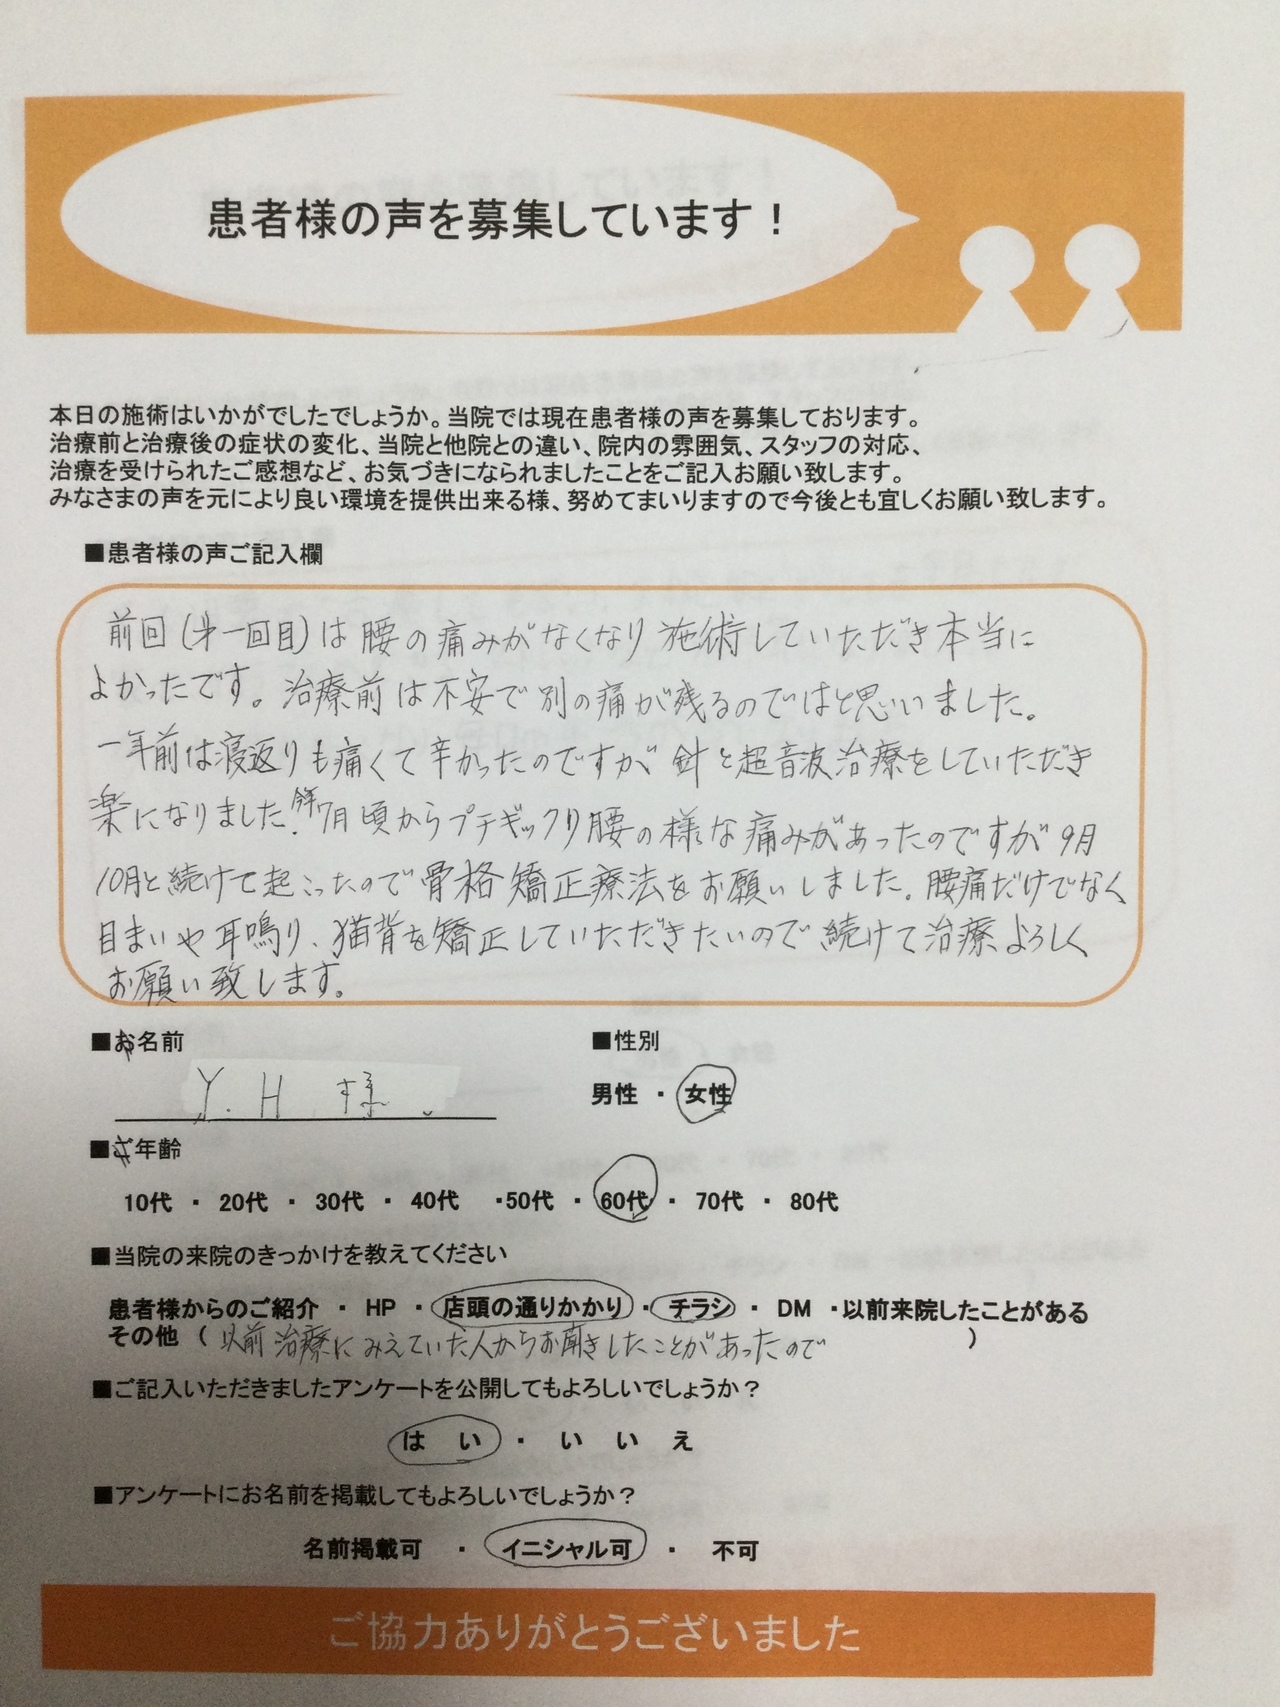 患者様の声を募集しています！
本日の施術はいかがでしたでしょうか。当院では現在患者様の声を募集しております。
治療前と治療後の症状の変化、当院と他院との違い、院内の雰囲気、スタッフの対応、
治療を受けられたご感想など、お気づきになられましたことをご記入お願い致します。
みなさまの声を元により良い環境を提供出来る様、努めてまいりますので今後とも宜しくお願い致します。
■患者様の声ご記入欄
前回(第一回目)は腰の痛みがなくなり施術していただき本当に
よかったです。治療前は不安で別の痛が残るのではと思いました。
一年前は寝返りも痛くて辛かったのですが針と超音波治療をしていただき
楽になりました。今年7月頃からプチギックリ腰の様な痛みがあったのですが9月
10月と続けて起こったので骨格矯正療法をお願いしました。腰痛だけでなく
目まいや耳鳴り、猫背を矯正していただきたいので続けて治療よろしく
お願い致します。
■お名前
Y. H 様
■性別
男性 ・ 女性
■ご年齢
10代 ・ 20代 ・ 30代 ・ 40代 ・50代 ・ 60代 ・ 70代 ・ 80代
■当院の来院のきっかけを教えてください
患者様からのご紹介 ・ HP ・ 店頭の通りかかり ・ チラシ ・ DM ・以前来院したことがある
その他 （ 以前治療にみえていた人からお聞きしたことがあったので ）
■ご記入いただきましたアンケートを公開してもよろしいでしょうか？
は い ・ い い え
■アンケートにお名前を掲載してもよろしいでしょうか？
名前掲載可 ・ イニシャル可 ・ 不可
ご協力ありがとうございました